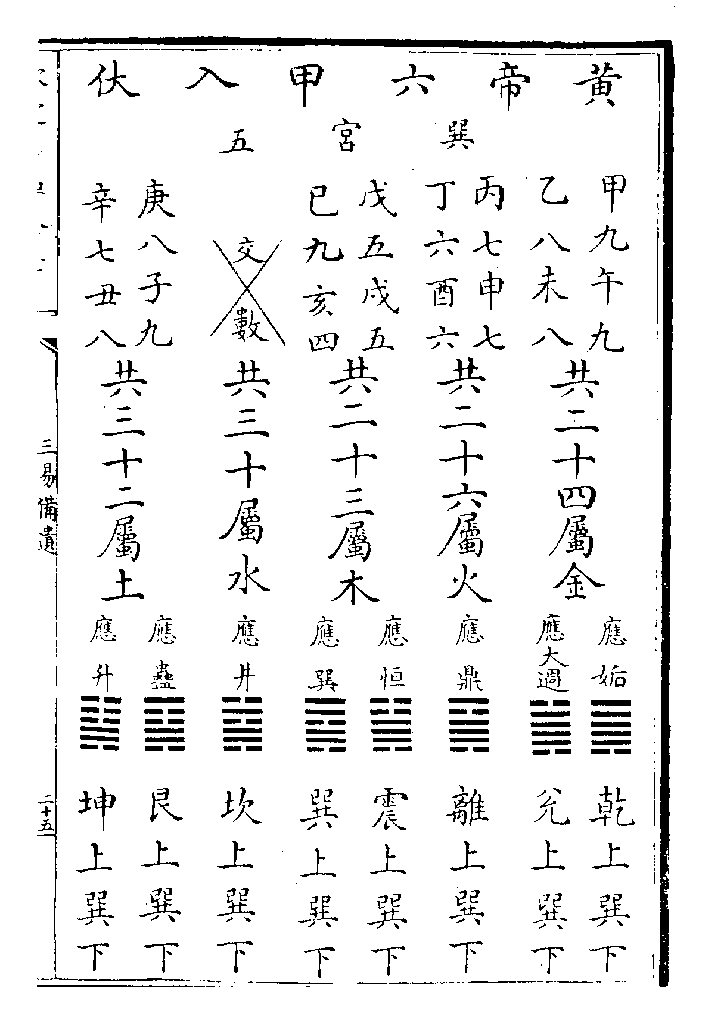 黄帝六甲入伏
巽宮五
甲九午九
乙八未八
共二十四屬金
丙七申七
丁六酉六
共二十六屬火
戊五戌五
巳九亥四
共二十三屬木
交數
共三十屬水
庚八子九
辛七丑八
共三十二屬土
應姤
應大過
應鼎
應恒
應巽
應井
應蠱
應升
乾上巽下
兊上巽下
離上巽下
震上巽下
巽上巽下
坎上巽下
艮上巽下
坤上巽下
三易備遺
二十五